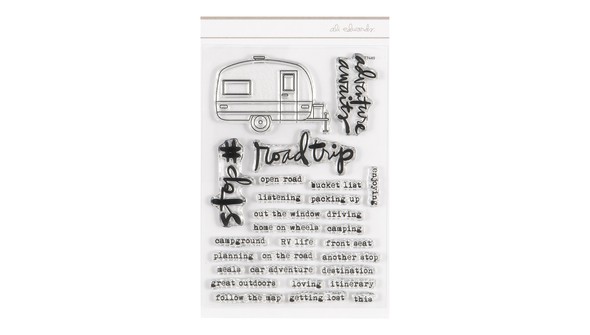 ali edwards
adventure
awaits
road trip
#days
enjoying
open road
bucket list
listening
packing up
out the window
driving
home on wheels
camping
campground
RV life
front seat
planning
on the road
another stop
meals
car adventure
destination
great outdoors
loving
itinerary
follow the map
getting lost
this